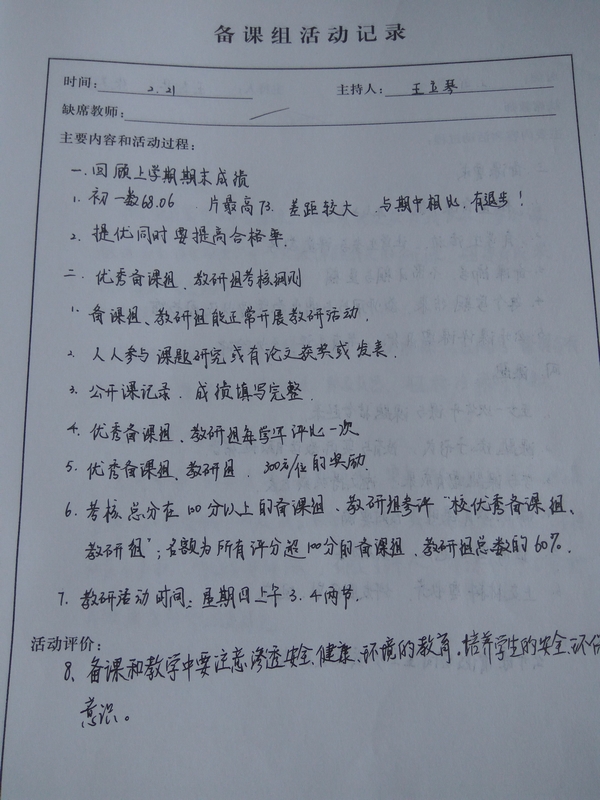 备课组活动记录
时间： 2.21 主持人： 王立琴
缺席教师：
主要内容和活动过程：
一.回顾上学期期末成绩
1. 初一数68.06 片最高73. 差距较大 与期中相比,有退步！
2. 提优同时要提高合格率.
二. 优秀备课组.教研组考核细则
1. 备课组、教研组能正常开展教研活动.
2. 人人参与课题研究或有论文获奖或发表.
3. 公开课记录.成绩填写完整.
4. 优秀备课组.教研组每学年评比一次
5. 优秀备课组、教研组. 300元/位的奖励.
6. 考核总分在100分以上的备课组、教研组参评“校优秀备课组、
教研组”；名额为所有评分超100分的备课组、教研组总数的60%.
7. 教研活动时间：星期四上午3.4两节.
活动评价：
8、备课和教学中要注意渗透安全、健康、环境的教育,培养学生的安全、环保
意识。